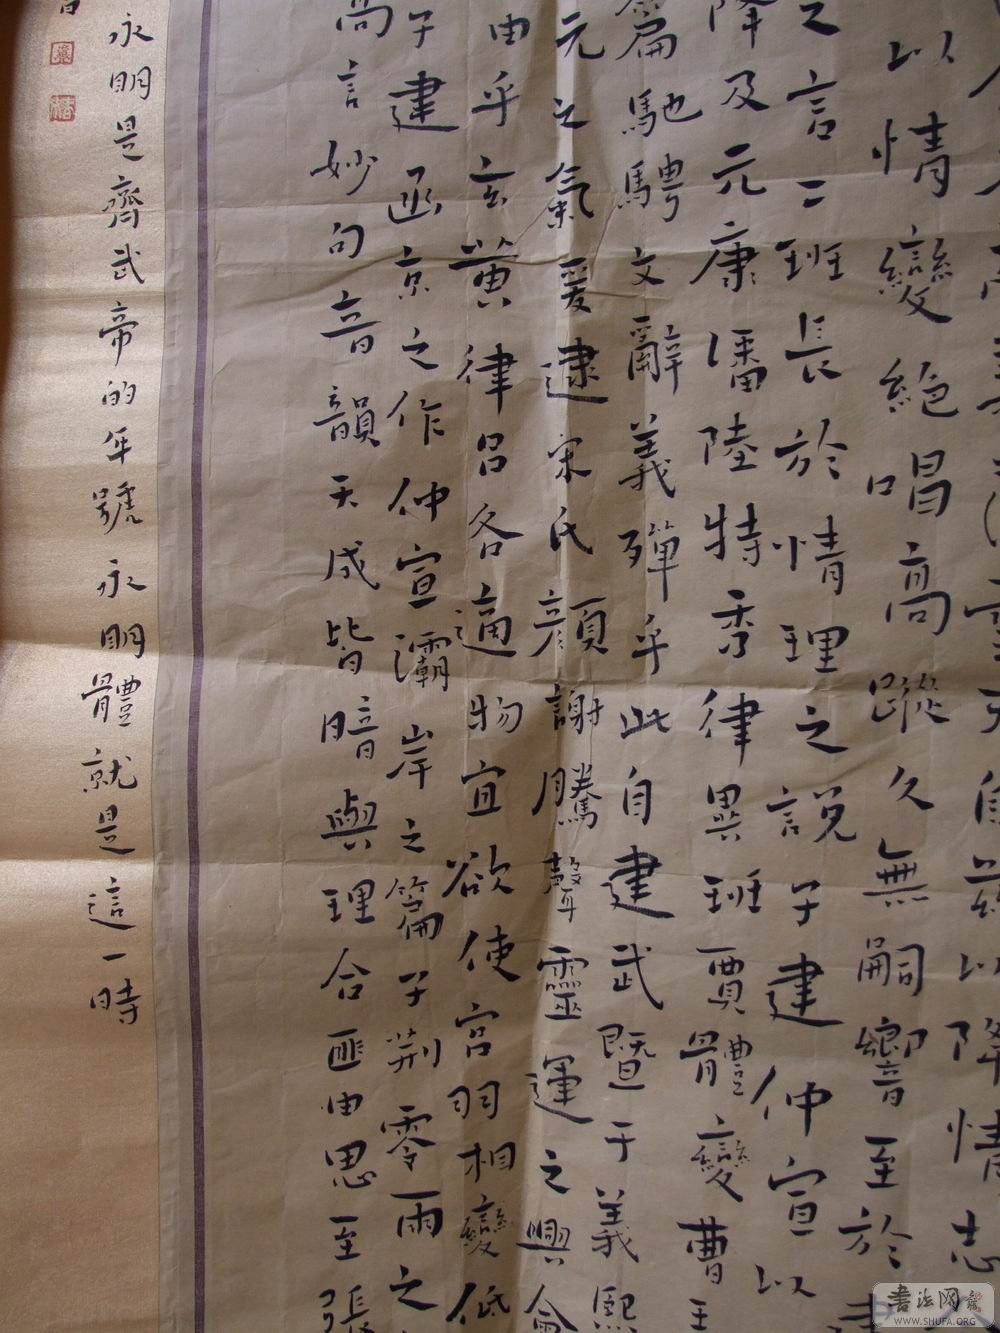 自茲以降情志
以情變絕唱高蹤久無嗣響至於
之言二班長於情理之說子建仲宣以
降及元康潘陸特秀律異班賈體變曹王
篇馳騁文辭義殫乎此自建武暨于義熙
元之氣爰逮宋氏顏謝騰聲靈運之興會
由乎玄黃律呂各適物宜欲使宮羽相變低
子建函京之作仲宣灞岸之篇子荊零雨之
高言妙句音韻天成皆暗與理合匪由思至張
永明是齊武帝的年號永明體就是這一時
书法网
WWW.SHUFA.ORG